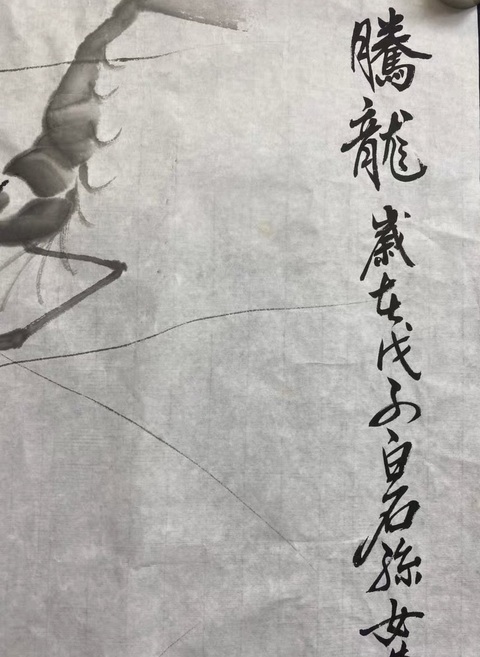 騰龍 歲在戊子白石孫女